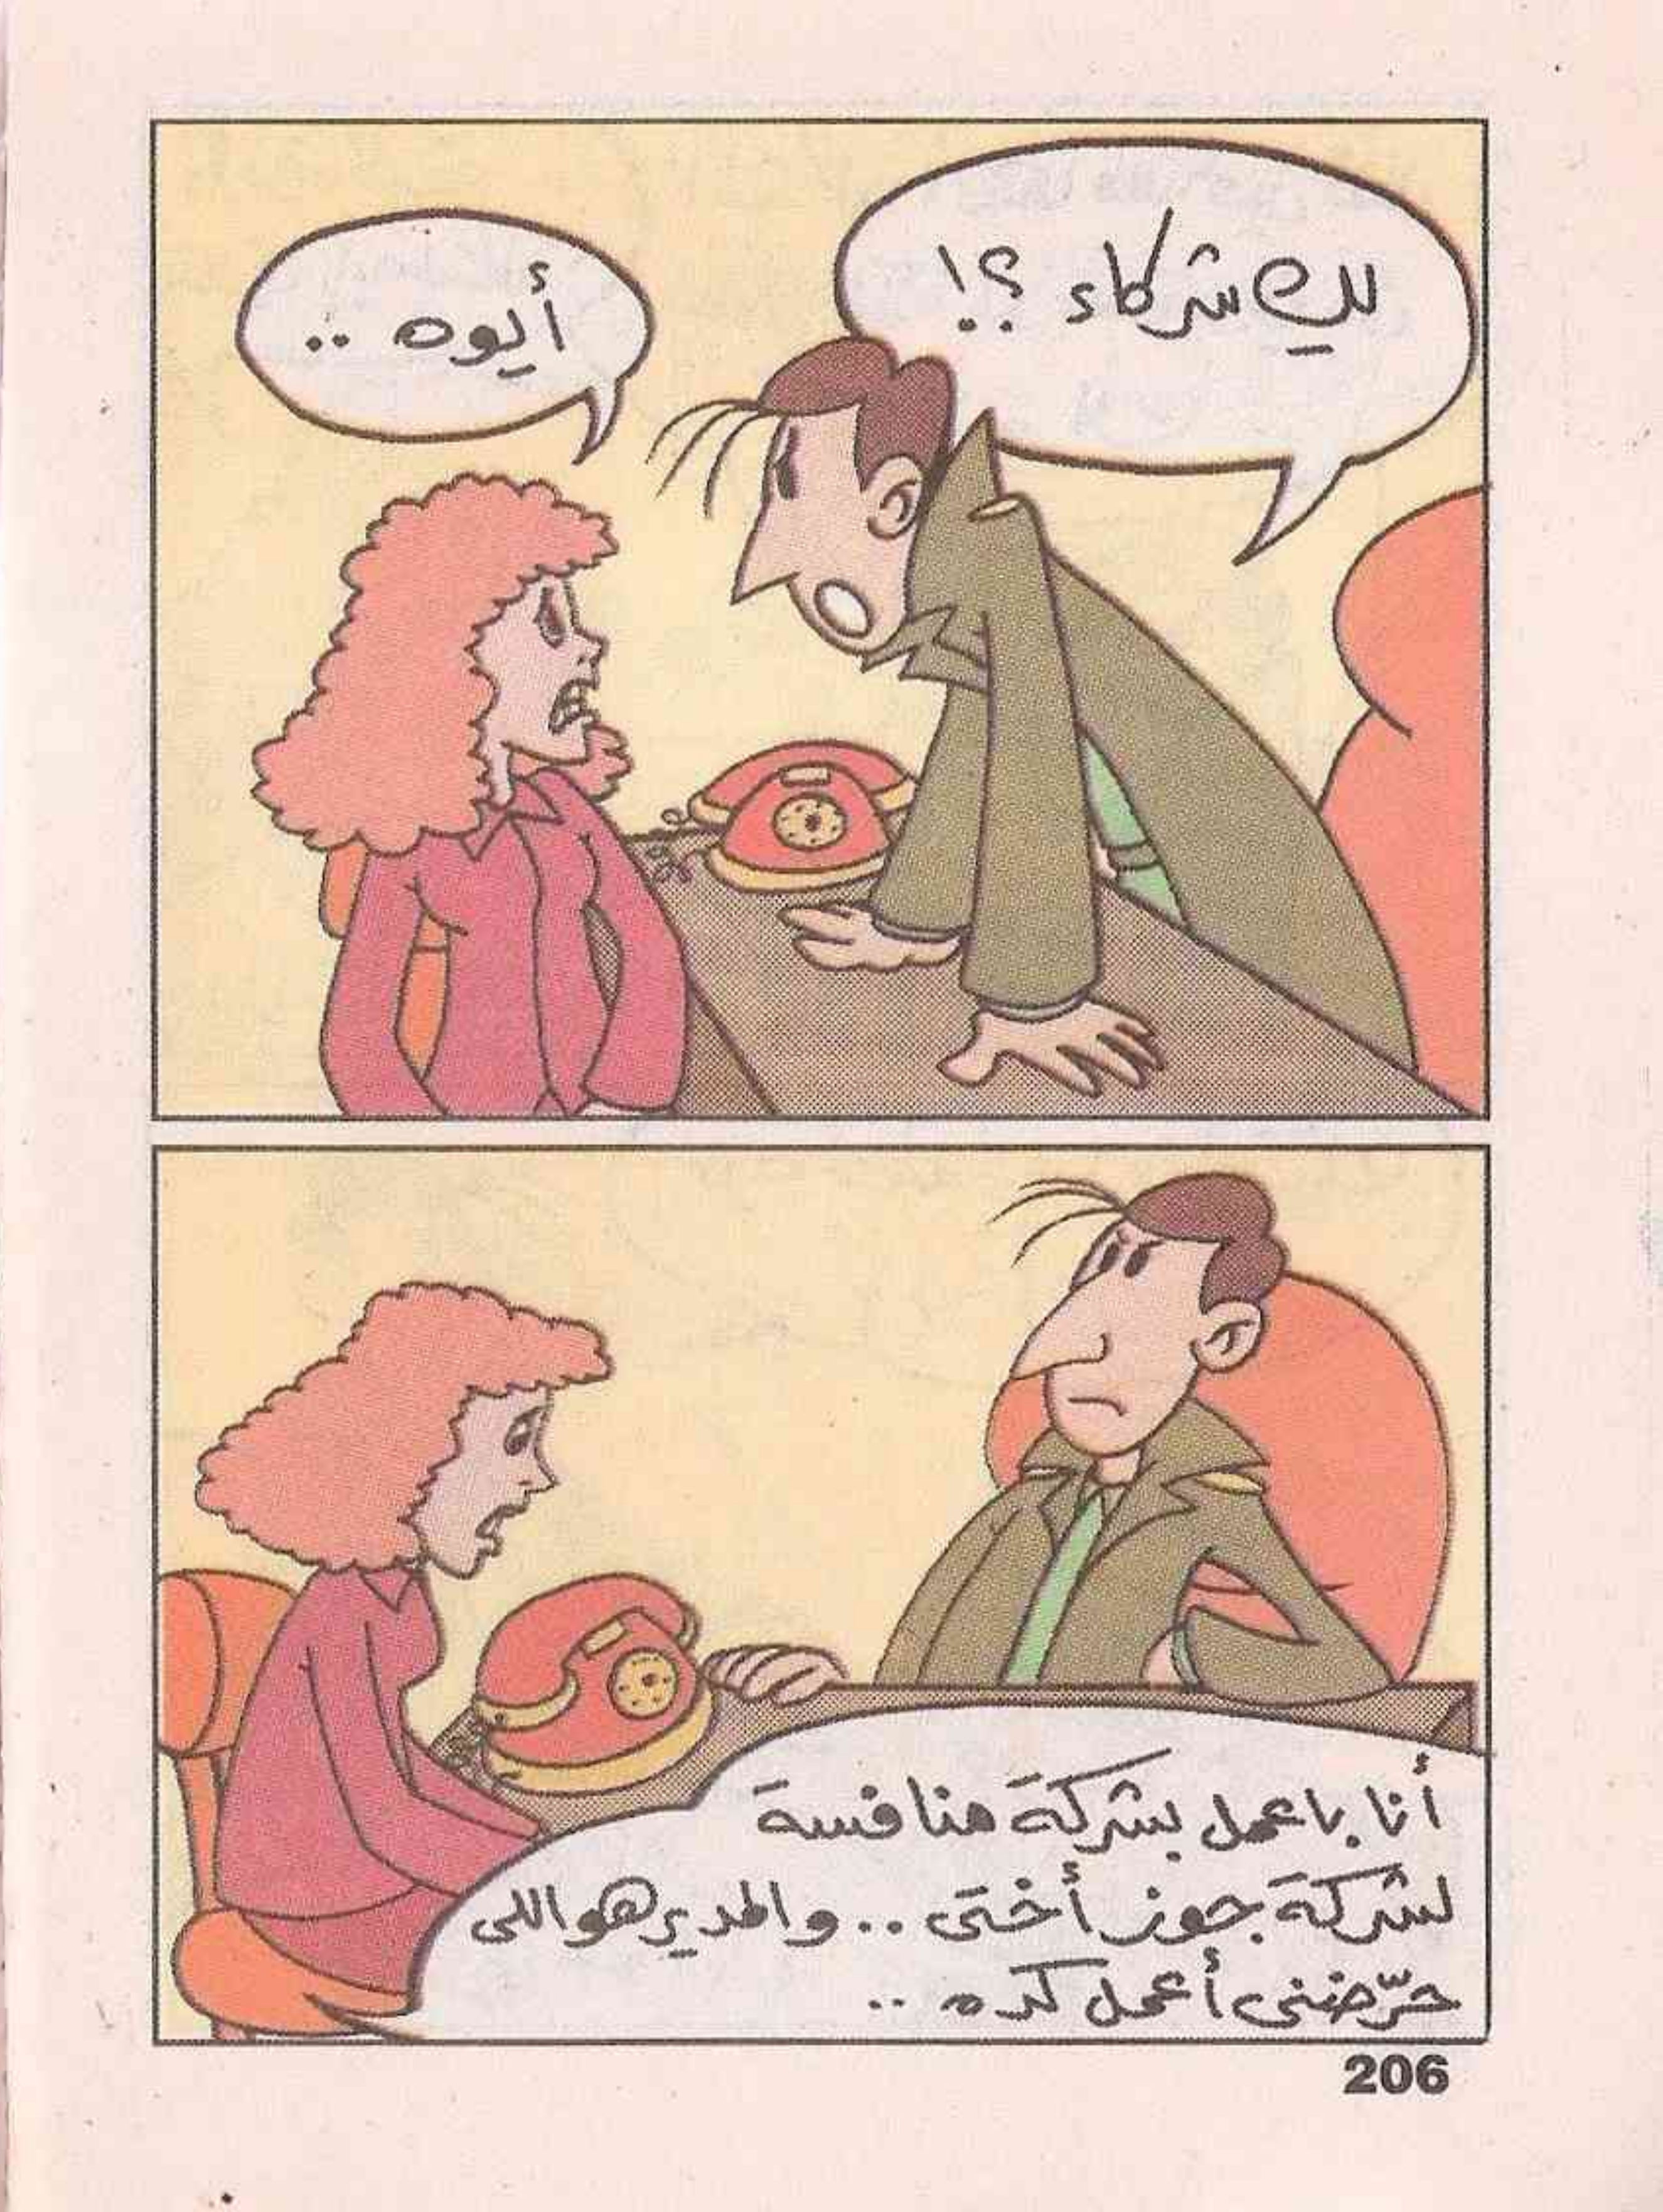 لكِ شركاء ؟!
أيوه ..
أنا باعمل بشركة منافسة
لشركة جوز أختى .. والمدير هو اللى
حرّضنى أعمل كده ..
206